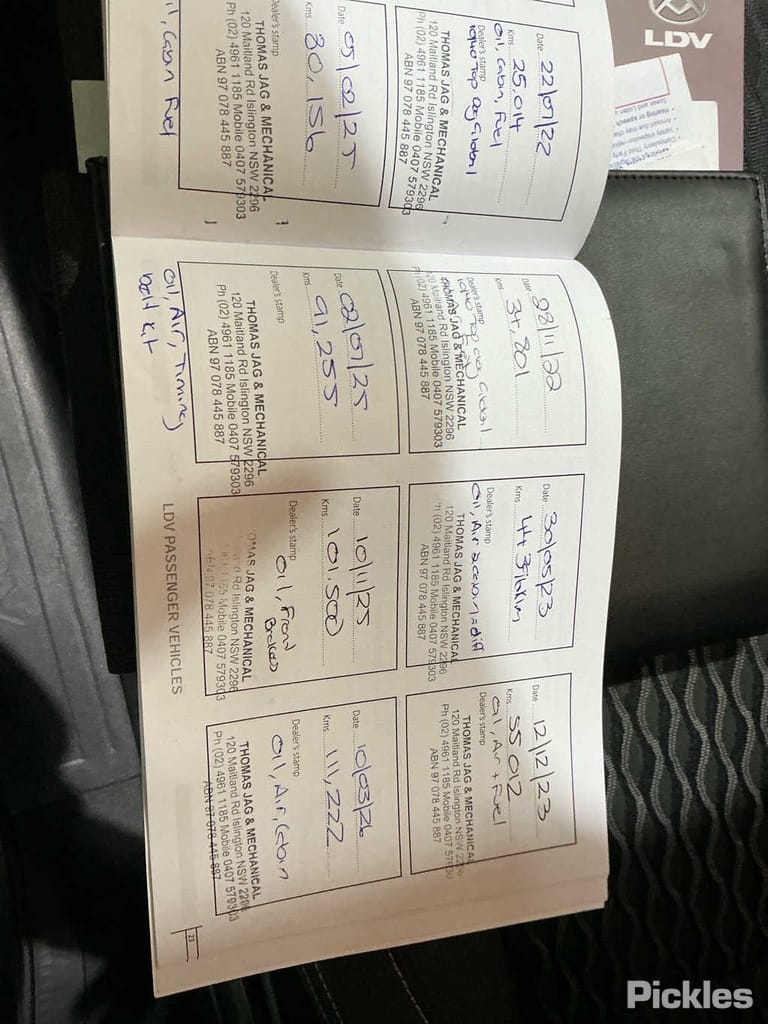 Date 22/07/22
Kms 25,014
Oil, Cabin, Fuel
Dealer's stamp
THOMAS JAG & MECHANICAL
120 Maitland Rd Islington NSW 2296
Ph (02) 4961 1185 Mobile 0407 579303
ABN 97 078 445 887
Date 05/02/25
Kms 80,156
Dealer's stamp
THOMAS JAG & MECHANICAL
120 Maitland Rd Islington NSW 2296
Ph (02) 4961 1185 Mobile 0407 579303
ABN 97 078 445 887
oil, Cabin Fuel
Date 28/11/22
Kms
Dealer's stamp
THOMAS JAG & MECHANICAL
120 Maitland Rd Islington NSW 2296
Ph (02) 4961 1185 Mobile 0407 579303
ABN 97 078 445 887
Date 30/05/23
Kms
Dealer's stamp
Oil, Air
THOMAS JAG & MECHANICAL
120 Maitland Rd Islington NSW 2296
Ph (02) 4961 1185 Mobile 0407 579303
ABN 97 078 445 887
Date 12/12/23
Kms 55012
Oil, Air + Fuel
Dealer's stamp
THOMAS JAG & MECHANICAL
120 Maitland Rd Islington NSW 2296
Ph (02) 4961 1185 Mobile 0407 57930
ABN 97 078 445 887
Date 02/07/25
Kms 91,255
Dealer's stamp
THOMAS JAG & MECHANICAL
120 Maitland Rd Islington NSW 2296
Ph (02) 4961 1185 Mobile 0407 579303
ABN 97 078 445 887
Oil, Air, Timing
belt Kit
Date 10/11/25
Kms 101,500
Dealer's stamp
Oil, Front
Brakes
OMAS JAG & MECHANICAL
Rd Islington NSW 2296
1185 Mobile 0407 579303
ABN 97 078 445 887
Date 10/03/26
Kms 111,222
Dealer's stamp
Oil, Air, Cabin
THOMAS JAG & MECHANICAL
120 Maitland Rd Islington NSW 2296
Ph (02) 4961 1185 Mobile 0407 579303
ABN 97 078 445 887
LDV PASSENGER VEHICLES
21
LDV
Pickles